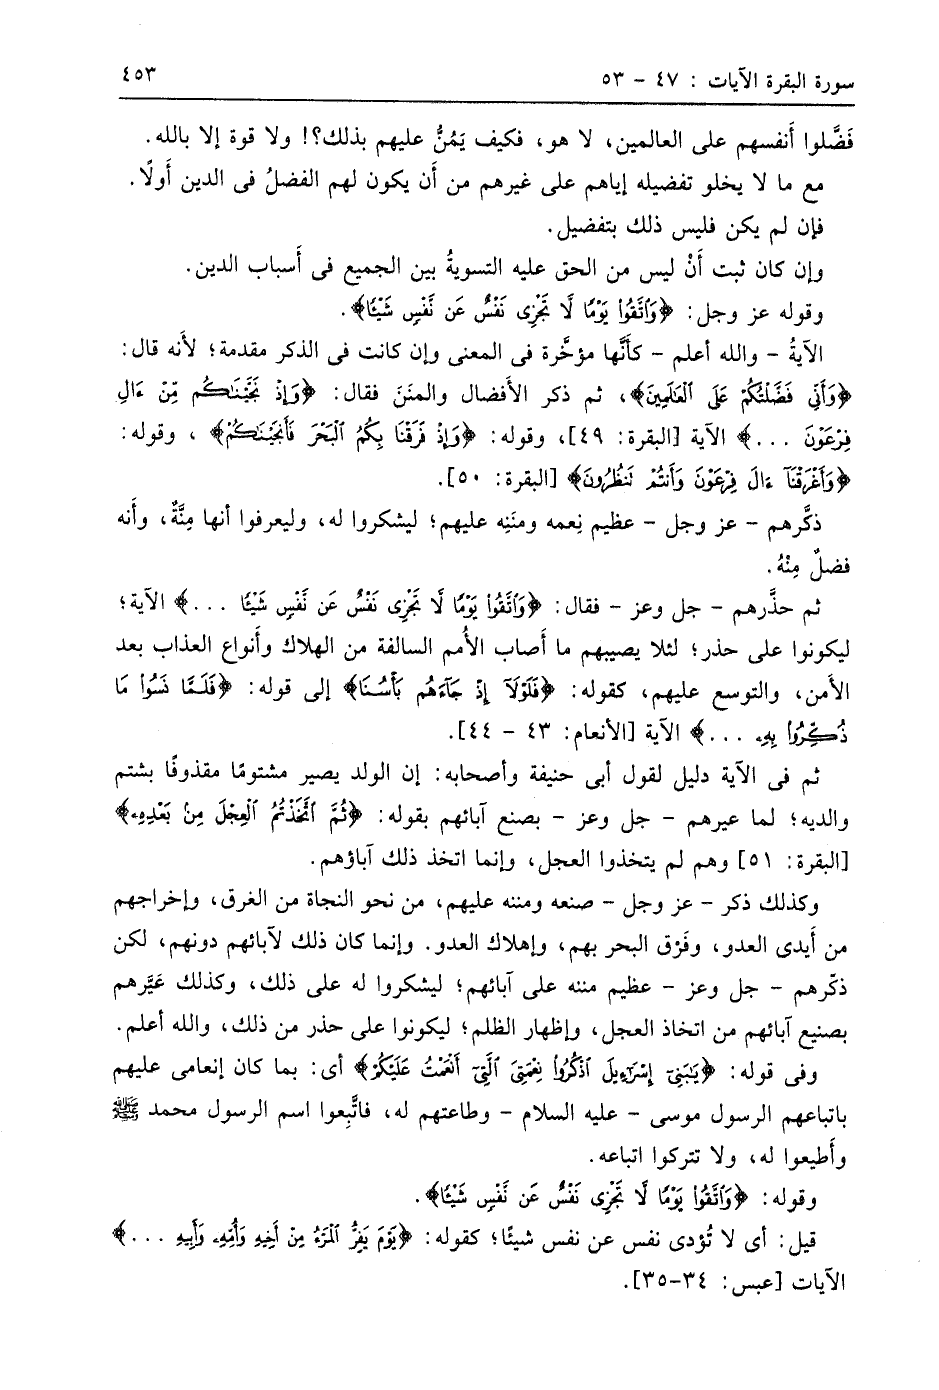 سورة البقرة الآيات : ٤٧ – ٥٣ ٤٥٣
فَضَّلوا أَنفسهم على العالمين، لا هو، فكيف يَمُنُّ عليهم بذلك؟! ولا قوة إلا بالله.
مع ما لا يخلو تفضيله إياهم على غيرهم من أن يكون لهم الفضلُ فى الدين أَولًا.
فإن لم يكن فليس ذلك بتفضيل.
وإن كان ثبت أَنْ ليس من الحق عليه التسويةُ بين الجميع فى أَسباب الدين.
وقوله عز وجل: ﴿وَٱتَّقُوا۟ يَوْمًا لَّا تَجْزِى نَفْسٌ عَن نَّفْسٍ شَيْـًٔا﴾.
الآيةُ – والله أعلم – كأَنَّها مؤخَّرة فى المعنى وإن كانت فى الذكر مقدمة؛ لأَنه قال:
﴿وَأَنِّى فَضَّلْتُكُمْ عَلَى ٱلْعَـٰلَمِينَ﴾، ثم ذكر الأَفضال والمنَنَ فقال: ﴿وَإِذْ نَجَّيْنَـٰكُم مِّنْ ءَالِ
فِرْعَوْنَ ...﴾ الآية [البقرة: ٤٩]، وقوله: ﴿وَإِذْ فَرَقْنَا بِكُمُ ٱلْبَحْرَ فَأَنجَيْنَـٰكُمْ﴾ ، وقوله:
﴿وَأَغْرَقْنَآ ءَالَ فِرْعَوْنَ وَأَنتُمْ تَنظُرُونَ﴾ [البقرة: ٥٠].
ذكَّرهم – عز وجل – عظيم نِعمه ومنَنِه عليهم؛ ليشكروا له، وليعرفوا أنها مِنَّةٌ، وأَنه
فضلٌ مِنْهُ.
ثم حذَّرهم – جل وعز – فقال: ﴿وَٱتَّقُوا۟ يَوْمًا لَّا تَجْزِى نَفْسٌ عَن نَّفْسٍ شَيْـًٔا ...﴾ الآية؛
ليكونوا على حذر؛ لئلا يصيبهم ما أَصاب الأُمم السالفة من الهلاك وأَنواع العذاب بعد
الأَمن، والتوسع عليهم، كقوله: ﴿فَلَوْلَآ إِذْ جَآءَهُم بَأْسُنَا﴾ إلى قوله: ﴿فَلَمَّا نَسُوا۟ مَا
ذُكِّرُوا۟ بِهِۦ ...﴾ الآية [الأنعام: ٤٣ – ٤٤].
ثم فى الآية دليل لقول أبى حنيفة وأصحابه: إن الولد يصير مشتومًا مقذوفًا بشتم
والديه؛ لما عيرهم – جل وعز – بصنع آبائهم بقوله: ﴿ثُمَّ ٱتَّخَذْتُمُ ٱلْعِجْلَ مِنۢ بَعْدِهِۦ﴾
[البقرة: ٥١] وهم لم يتخذوا العجل، وإنما اتخذ ذلك آباؤهم.
وكذلك ذكر – عز وجل – صنعه ومننه عليهم، من نحو النجاة من الغرق، وإخراجهم
من أَيدى العدو، وفَرْق البحر بهم، وإهلاك العدو. وإنما كان ذلك لآبائهم دونهم، لكن
ذكّرهم – جل وعز – عظيم مننه على آبائهم؛ ليشكروا له على ذلك، وكذلك عَيَّرهم
بصنيع آبائهم من اتخاذ العجل، وإظهار الظلم؛ ليكونوا على حذر من ذلك، والله أعلم.
وفى قوله: ﴿يَـٰبَنِىٓ إِسْرَٰٓءِيلَ ٱذْكُرُوا۟ نِعْمَتِىَ ٱلَّتِىٓ أَنْعَمْتُ عَلَيْكُمْ﴾ أى: بما كان إنعامى عليهم
باتباعهم الرسول موسى – عليه السلام – وطاعتهم له، فاتَّبِعوا اسم الرسول محمد ﷺ
وأَطيعوا له، ولا تتركوا اتباعه.
وقوله: ﴿وَٱتَّقُوا۟ يَوْمًا لَّا تَجْزِى نَفْسٌ عَن نَّفْسٍ شَيْـًٔا﴾.
قيل: أى لا تُؤدى نفس عن نفس شيئًا؛ كقوله: ﴿يَوْمَ يَفِرُّ ٱلْمَرْءُ مِنْ أَخِيهِ وَأُمِّهِۦ وَأَبِيهِ ...﴾
الآيات [عبس: ٣٤-٣٥].